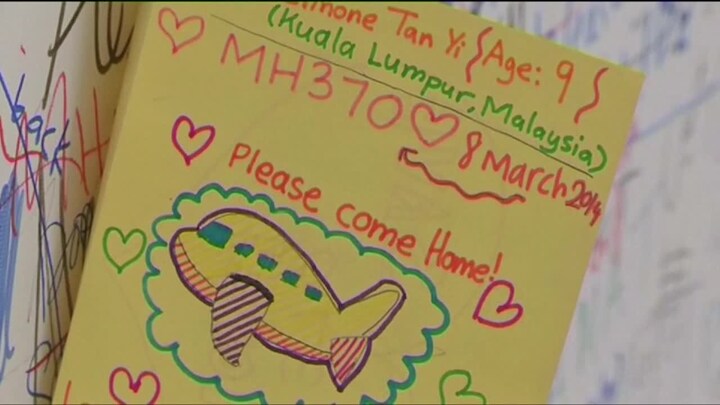 Tan Yi {Age: 9}
(Kuala Lumpur, Malaysia)
MH370 ♡ 8 March 2014
Please come Home!
back